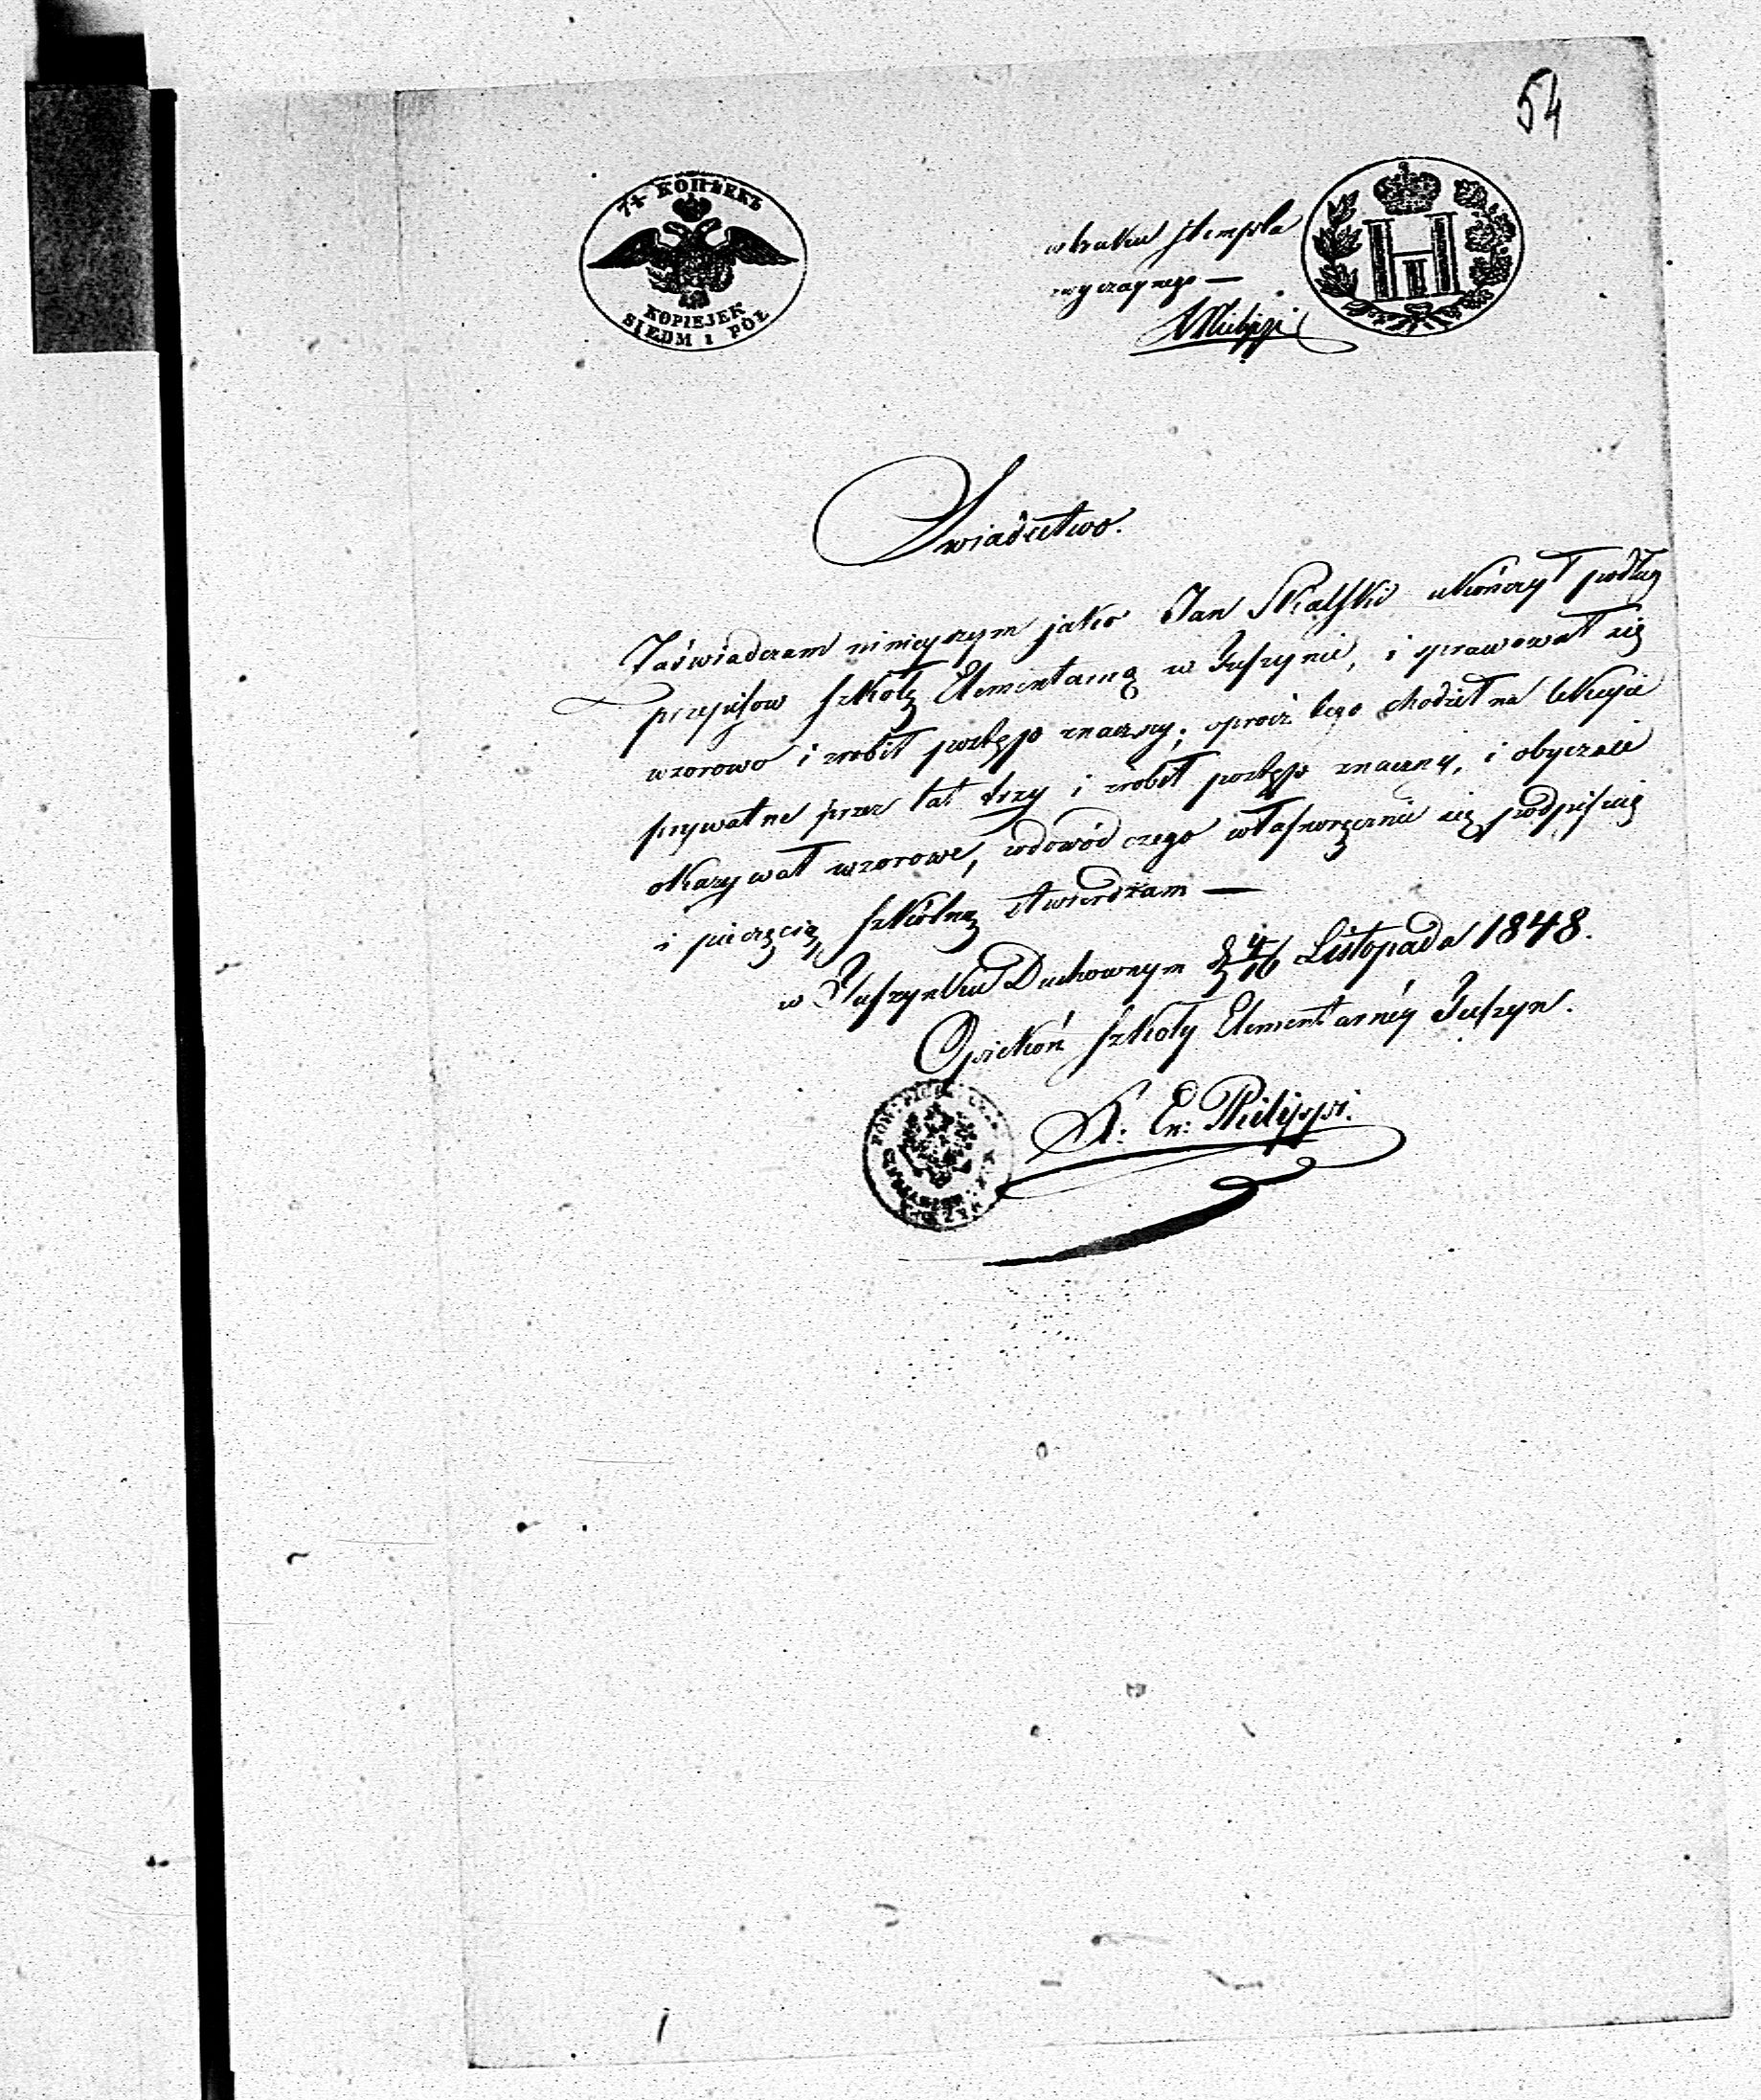 54
7½ КОПѢЕКЪ
KOPIEJEK
SIEDM i PÓŁ
w braku stempla
zwyczaynego —
Philippi
Swiadectwo.
Zaświadczam ninieyszym jako Jan Skalski ukończył podług
przepisow szkołę Elementarną w Juszynie, i sprawował się
wzorowo i zrobił postęp znaczny; oprocz tego chodził na lekcyie
prywatne przez lat trzy i zrobił postęp znaczny, i obyczaie
okazywał wzorowe, wdowód czego własnoręcznie się podpisuię
i pieczęcią szkólną stwierdzam —
w Juszynku Duchownym d 4/16 Listopada 1848.
Opiekón szkoły Elementarnéy Juszyn.
X. En: Philippi.